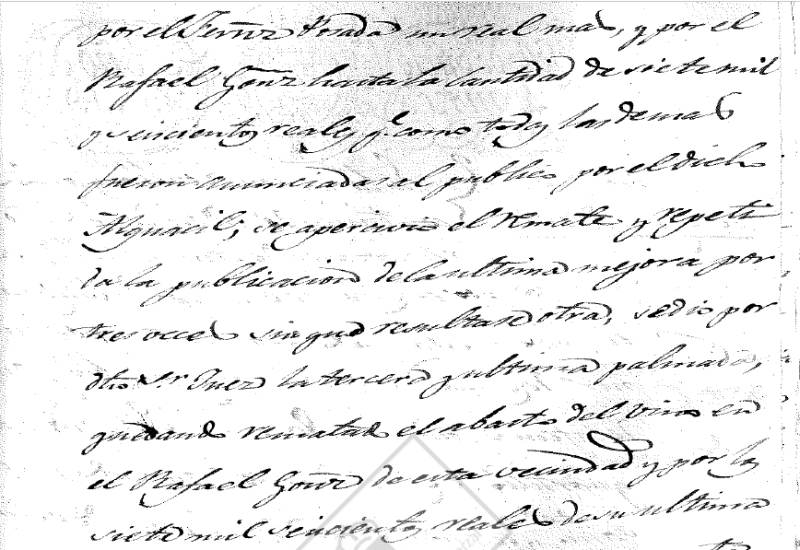 por el Fernz Posada un real mas, y por el
Rafael Gonz hasta la Cantidad de siete mil
y seiscientos reales, q.e como todas las demas
fueron anunciadas al publico por el dicho
Alguacil; se apercivio el remate y repeti
da la publicacion de la ultima mejora por
tres veces sin que resultase otra, se dio por
dho Sr Juez la tercera y ultima palmada,
quedando rematado el abasto del vino en
el Rafael Gonz de esta vecindad y por los
siete mil seiscientos reales de su ultima